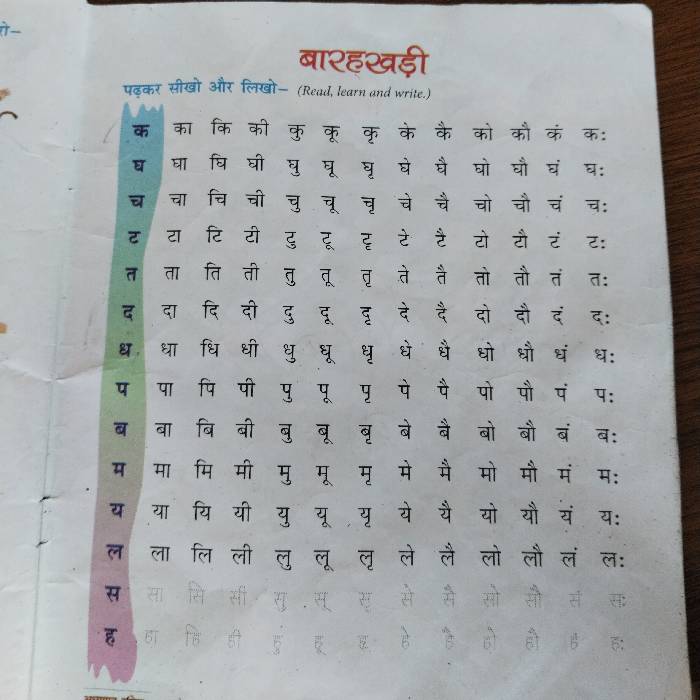 रो–
बारहखड़ी
पढ़कर सीखो और लिखो– (Read, learn and write.)
क का कि की कु कू कृ के कै को कौ कं कः
घ घा घि घी घु घू घृ घे घै घो घौ घं घः
च चा चि ची चु चू चृ चे चै चो चौ चं चः
ट टा टि टी टु टू टृ टे टै टो टौ टं टः
त ता ति ती तु तू तृ ते तै तो तौ तं तः
द दा दि दी दु दू दृ दे दै दो दौ दं दः
ध धा धि धी धु धू धृ धे धै धो धौ धं धः
प पा पि पी पु पू पृ पे पै पो पौ पं पः
ब बा बि बी बु बू बृ बे बै बो बौ बं बः
म मा मि मी मु मू मृ मे मै मो मौ मं मः
य या यि यी यु यू यृ ये यै यो यौ यं यः
ल ला लि ली लु लू लृ ले लै लो लौ लं लः
स सा सि सी सु सू सृ से सै सो सौ सं सः
ह हा हि ही हु हू हृ हे है हो हौ हं हः